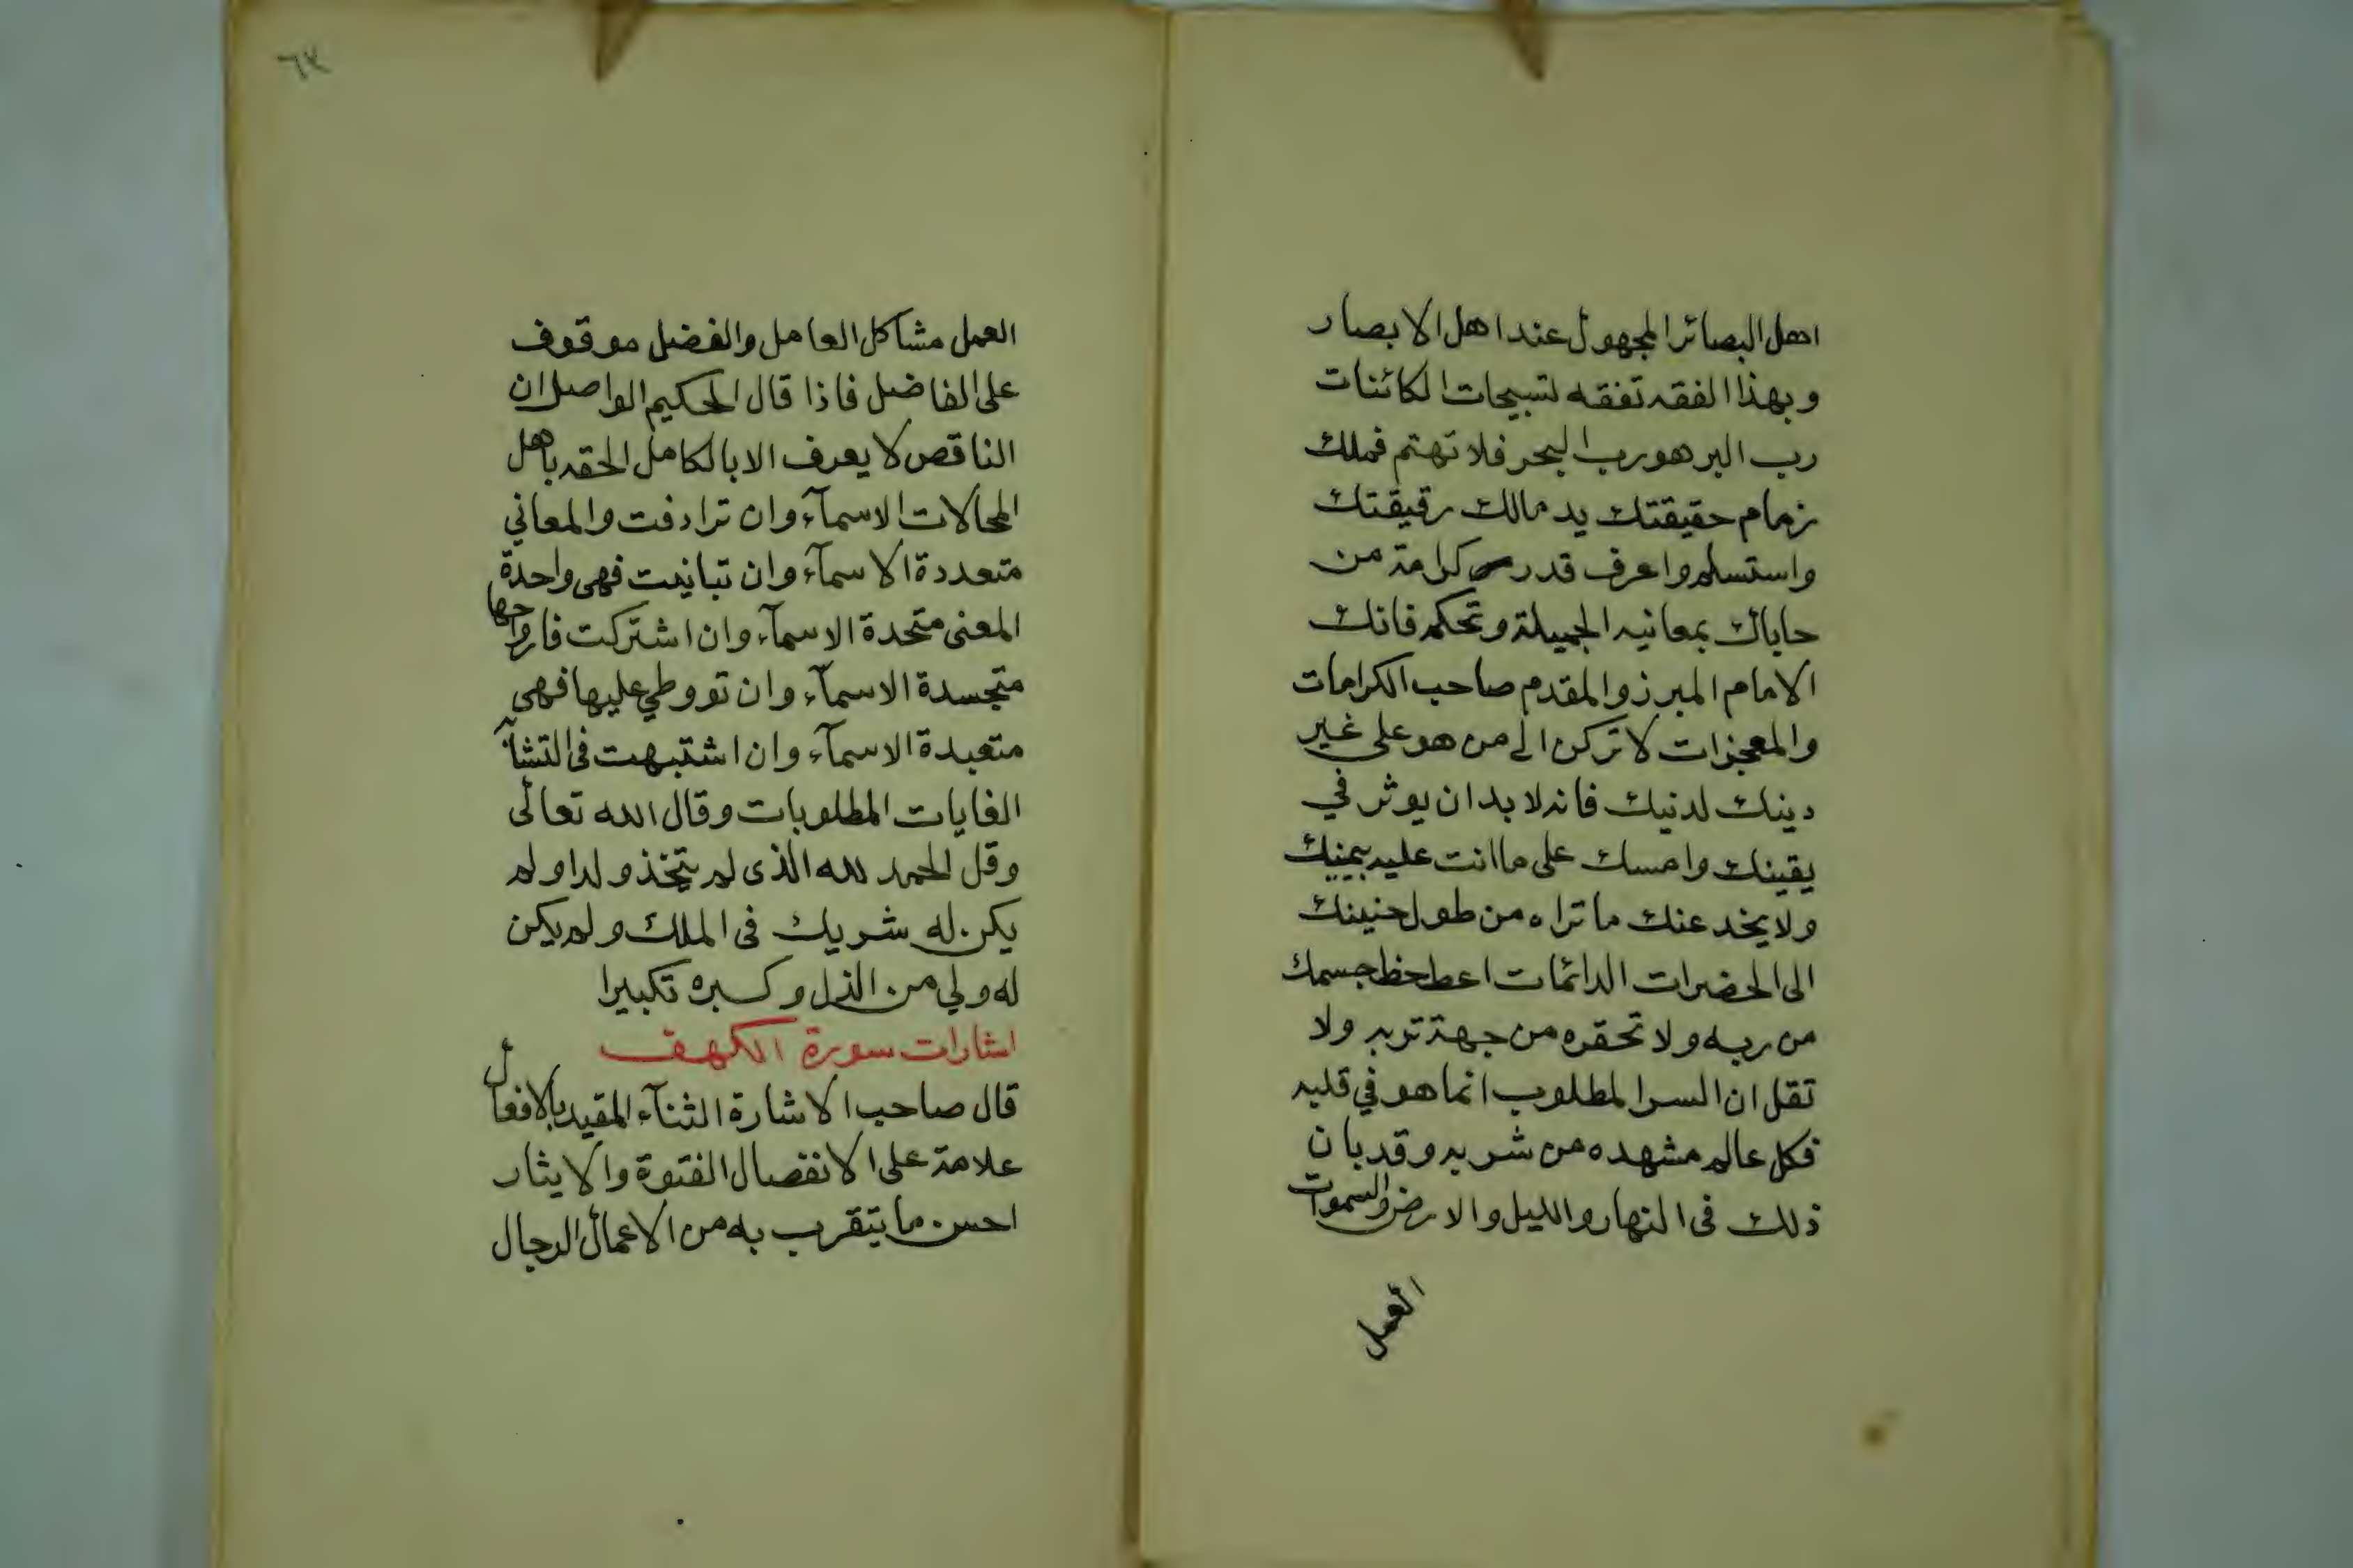 اهل البصائر المجهول عند اهل الابصار
وبهذا الفقه تفقه تسبيحات الكائنات
رب البر هو رب البحر فلا تهتم فملك
زمام حقيقتك يد مالك رقيقتك
واستسلم واعرف قدر كرامة من
حاباك بمعانيه الجميلة وتحكم فانك
الامام المبرز والمقدم صاحب الكرامات
والمعجزات لا تركن الى من هو على غير
دينك لدنيك فانه لا بد ان يوثر في
يقينك وامسك على ما انت عليه بيمينك
ولا يخدعنك ما تراه من طول حنينك
الى الحضرات الدائمات اعط حظ جسمك
من ربه ولا تحقره من جهة تربه ولا
تقل ان السر المطلوب انما هو في قلبه
فكل عالم مشهده من شربه وقد بان
ذلك فى النهار والليل والارض والسموات
العمل
٦٣
العمل مشاكل العامل والفضل موقوف
على الفاضل فاذا قال الحكيم الواصل ان
الناقص لا يعرف الا بالكامل الحقه باهل
المحالات الاسمآء وان ترادفت والمعاني
متعددة الاسمآء وان تباينت فهى واحدة
المعنى متحدة الاسمآء وان اشتركت فارواحها
متجسدة الاسمآء وان تووطي عليها فهى
متعبدة الاسمآء وان اشتبهت فى
الغايات المطلوبات وقال الله تعالى
وقل الحمد لله الذى لم يتخذ ولدا ولم
يكن له شريك فى الملك ولم يكن
له ولي من الذل وكبره تكبيرا
اشارات سورة الكهف
قال صاحب الاشارة الثنآء المقيد بالافعال
علامة على الانفصال الفتوة والايثار
احسن ما يتقرب به من الاعمال الرجال